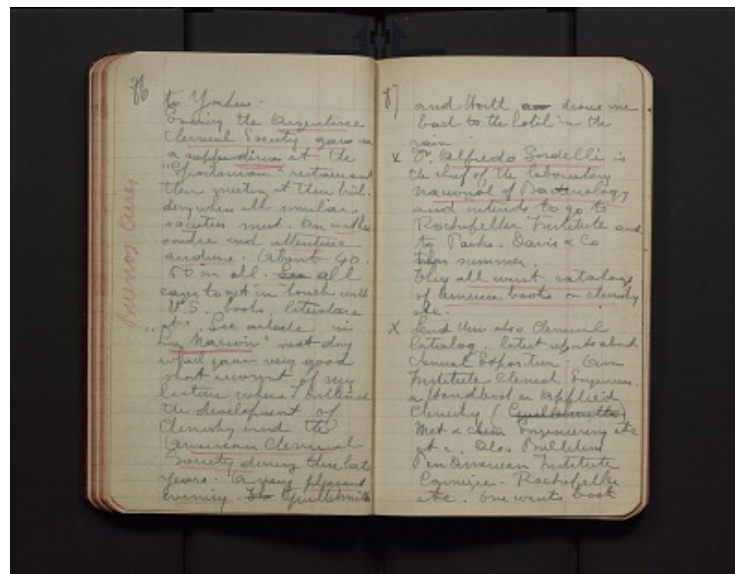 86
to Yonkers.
Evening the Argentine
Chemical Society gave me
a supper dinner at the
"Sportsman" restaurant
then meeting at their buil-
ding where all similar
societies meet. An enthu-
siastic and attentive
audience. (About 40.
50 in all. See all
eager to get in touch with
U.S. books, literature
etc. See article in
"La Nacion" next day
which gave very good
short account of my
lecture where I outlined
the development of
Chemistry and the
American Chemical
Society during these late
years. A very pleasant
evening. Guillelmitti
Buenos Aires
87
and North drove me
back to the hotel in the
rain.
x Dr Alfredo Sordelli is
the chief of the laboratory
Nacional of Bacteriology
and intends to go to
Rockefeller Institute and
to Parke. Davis & Co
this summer.
They all want catalogs
of american books on chemistry
etc.
x Send them also Chemical
Catalog. latest reports about
Chemical Exposition. Am
Institute Chemical Engineers.
a Handbook on Applied
Chemistry (
Met & Chem Engineering etc
etc. Also Bulletins
Pan American Institute
Carnegie - Rockefeller
etc. One wants book